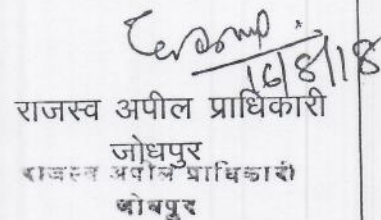 16/8/18
राजस्व अपील प्राधिकारी
जोधपुर
राजस्व अपील प्राधिकारी
जोधपुर